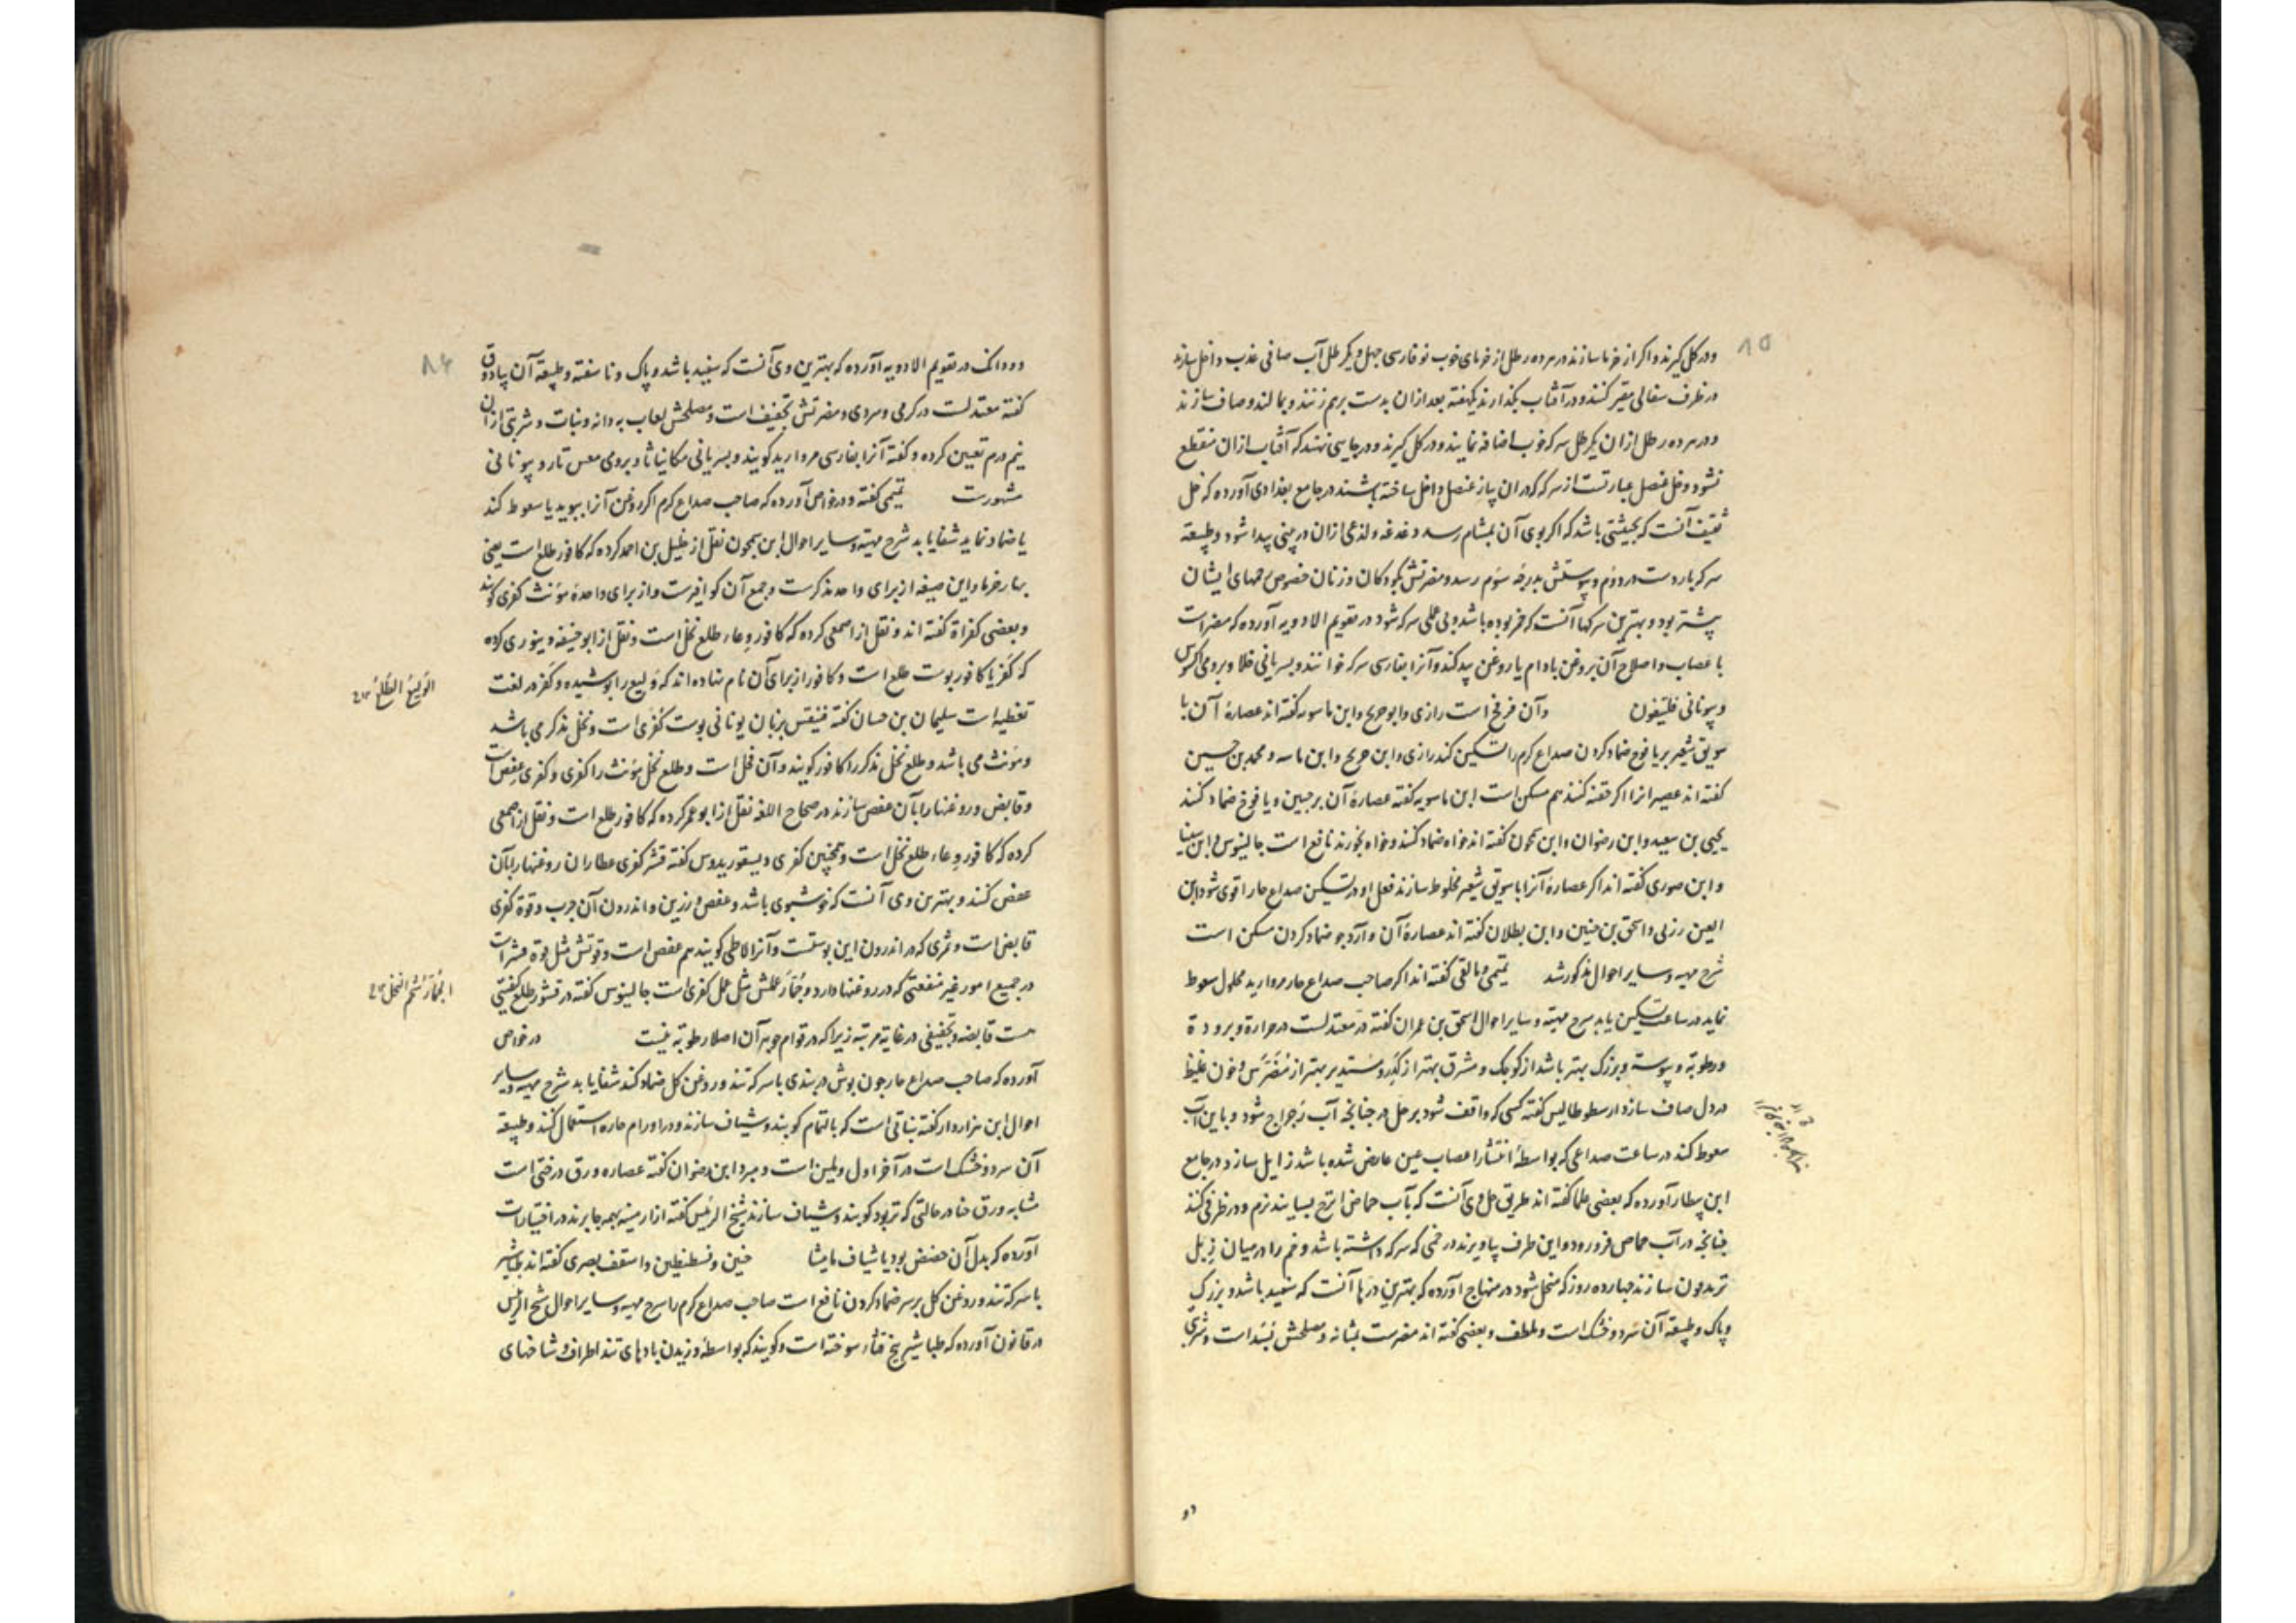 ۸۵
و در کل گیرند و اگر از خرما سازند در هر ده رطل از خرمای خوب نو فارسی چهل و یکرطل آب صافی عذب داخل سازند
در ظرف سفالی مقیر کنند و در آفتاب بگذارند یکهفته بعد ازان بدست برهم زنند و بمالند و صاف سازند
و در هر ده رطل ازان یکرطل سرکه خوب اضافه نمایند و در کل گیرند و در جایی نهند که آفتاب ازان منقطع
نشود و خل عنصل عبارتست از سرکه که در ان پیاز عنصل داخل ساخته باشند در جامع بغدادی آورده که خل
ثقیف آنست که بحیثیتی باشد که اگر بوی آن بمشام رسد دغدغه و لذعی ازان در بینی پیدا شود و طبیعة
سرکه باردست در دوم و یبوستش بدرجه سوم رسد و مضرتش بکودکان و زنان خصوص رحمهای ایشان
بیشتر بود و بهترین سرکها آنست که خمر بوده باشد و بی عملی سرکه شود در تقویم الادویه آورده که مضر است
باعصاب و اصلاح آن بروغن بادام یا روغن بید کند و آنرا بفارسی سرکه خوانند و بسریانی خلا و برومی اکسوس
و بیونانی فلتیفون وآن فرفخ است رازی و ابوجریح و ابن ماسویه گفته اند عصارهٔ آن با
سویق شعیر بر یافوخ ضماد کردن صداع گرم را تسکین کند رازی و ابن جریح و ابن ماسه و محمد بن حسین
گفته اند عصیر انرا اگر حقنه کنند هم مسکن است ابن ماسویه گفته عصارهٔ آن بر جبین و یافوخ ضماد کنند
یحیی بن سعید و ابن رضوان و ابن سمجون گفته اند خواه ضماد کنند و خواه بخورند نافع است جالینوس و ابن سینا
و ابن صوری گفته اند اگر عصارهٔ آنرا با سویق شعیر مخلوط سازند فعل او در تسکین صداع حار اقوی شود ابن
العین زربی و اسحق بن حنین و ابن بطلان گفته اند عصارهٔ آن و آرد جو ضماد کردن مسکن است
شرح مهیه و سایر احوال مذکور شد تمیمی و مالقی گفته اند اگر صاحب صداع حار مروارید محلول سعوط
نماید در ساعت تسکین یابد شرح مهیته و سایر احوال اسحق بن عمران گفته در معتدلست در حرارة و برودة
و رطوبة و یبوسته و بزرگ بهتر باشد از کوچک و مشرق بهتر از کدر و مستدیر بهتر از مضرس و خون غلیظ
در دل صاف سازد ارسطوطالیس گفته کسی که واقف شود بر حل در چنانچه آب زجراج شود و باین آب
سعوط کند در ساعت صداعی که بواسطهٔ انتشار اعصاب عین عارض شده باشد زایل سازد در جامع
ابن بیطار آورده که بعضی علما گفته اند طریق حل وی آنست که بآب حماض اترج بسایند نرم و در ظرفی کند
چنانچه در آب حماض فرو رود و این ظرف بیاویزند در خمی که سرکه داشته باشد و خم را در میان زبل
تر مدفون سازند چهارده روز که منحل شود در منهاج آورده که بهترین درها آنست که سفید باشد و بزرگ
و پاک و طبیعة آن سرد و خشک است و ملطف و بعضی گفته اند مضرست بمثانه و مصلحش بسد است و شربتی
دو
۸۶
دو دانک در تقویم الادویه آورده که بهترین وی آنست که سفید باشد و پاک و ناسفته و طبیعة آن پادوق
گفته معتدلست در گرمی و سردی و مضرتش تجفیف است و مصلحش لعاب به دانه و نبات و شربتی ازان
نیم درم تعیین کرده و گفته آنرا بفارسی مروارید گویند و بسریانی مکانیاثا و برومی معس تار و بیونانی
مشهورست تمیمی گفته و در خواص آورده که صاحب صداع گرم اگر روغن آنرا ببوید یا سعوط کند
یا ضماد نماید شفا یابد شرح مهیته و سایر احوال ابن سمجون نقل از خلیل بن احمد کرده که کافور طلع است یعنی
بهار خرما و این صیغه از برای واحد مذکرست و جمع آن کوافیرست و از برای واحدهٔ مؤنث کفری گویند
و بعضی کفراة گفته اند و نقل از اصمعی کرده که کافور وعاء طلع نخل است و نقل از ابوحنیفه دینوری کرده
که کفر یا کافور پوست طلع است و کافور از برای آن نام نهاده اند که ولیع را پوشیده و کفر در لغت
الولیع الطلع
تغطیه است سلیمان بن حسان گفته فینقس بزبان یونانی پوست کفری است و نخل مذکر می باشد
و مؤنث می باشد و طلع نخل مذکر را کافور گویند و آن فحل است و طلع نخل مؤنث را کفری و کفری عفص است
و قابض و روغنها را بآن عفص سازند در صحاح اللغه نقل از ابو عمر کرده که کافور طلع است و نقل از اصمعی
کرده که کافور وعاء طلع نخل است و همچنین کفری دیسقوریدوس گفته قشر کفری عطاران روغنها را بآن
عفص کنند و بهترین وی آنست که خوشبوی باشد و عفص و رزین و اندرون آن چرب و قوة کفری
قابض است و ثمری که در اندرون این پوستست و آنرا لاطی گویند هم عفص است و قوتش مثل قوة قشر است
در جمیع امور غیر منفعتی که در روغنها دارد و جمار عملش مثل عمل کفری است جالینوس گفته در قشور طلع کیفیتی
الجمار شحم النخل
هست قابضه و تجفیفی در غایة مرتبه زیرا که در قوام جوهر آن اصلا رطوبة نیست در خواص
آورده که صاحب صداع حار چون بوش دربندی با سرکه تند و روغن کل ضماد کند شفا یابد شرح مهیه و سایر
احوال ابن هزاردار گفته نباتی است که بالتمام کوبند و شیاف سازند و در اورام حاره استعمال کنند و طبیعة
آن سرد و خشک است در آخر اول و ملین است و مبرد ابن رضوان گفته عصاره ورق درختی است
مشابه ورق حنا در حالتی که تر بود کوبند و شیاف سازند شیخ الرئیس گفته از ارمینیه بهمه جا برند در اختیارات
آورده که بدل آن حضض بود یا شیاف مامیثا حنین و قسطنطین و اسقف بصری گفته اند طباشیر
با سرکه تند و روغن کل بر سر ضماد کردن نافع است صاحب صداع گرم را شرح مهیه و سایر احوال شیخ الرئیس
در قانون آورده که طباشیر بیخ قناء سوخته است و گویند که بواسطهٔ وزیدن بادهای تند اطراف و شاخهای